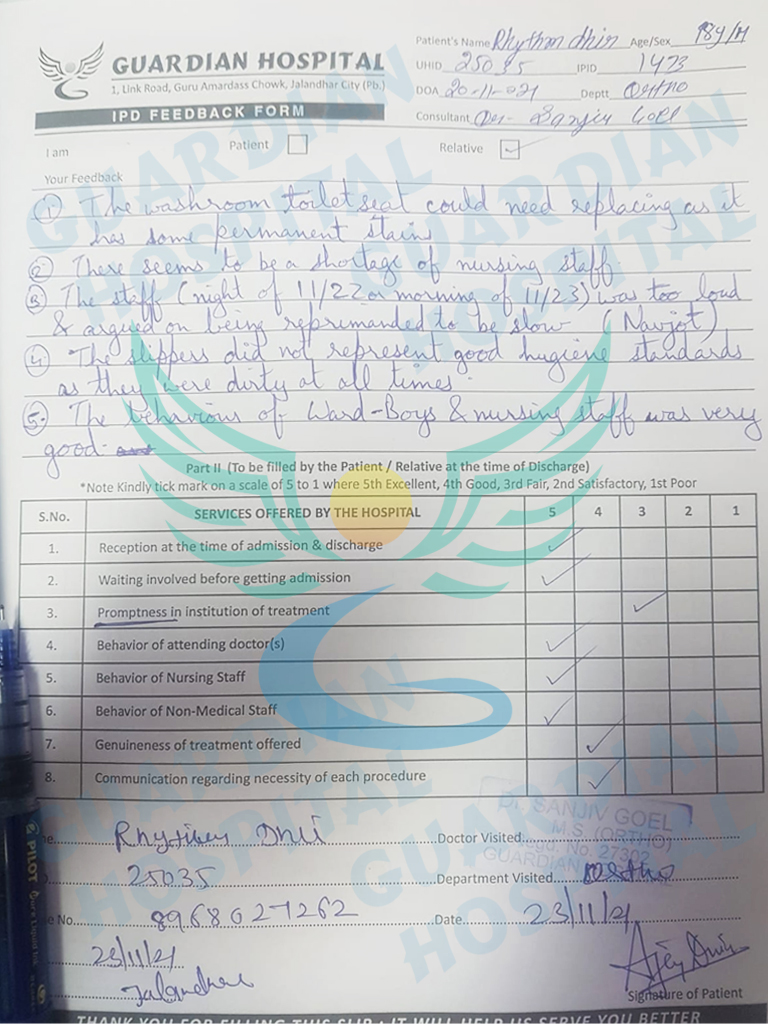 GUARDIAN HOSPITAL
1, Link Road, Guru Amardass Chowk, Jalandhar City (Pb.)
IPD FEEDBACK FORM
Patient's Name Rhythm Dhir Age/Sex 18y/M
UHID 25035 IPID 1473
DOA 20-11-021 Deptt Ortho
Consultant Dr. Sanjiv Goel
I am Patient Relative ✓
Your Feedback
① The washroom toilet seat could need replacing as it
has some permanent stains
② There seems to be a shortage of nursing staff.
③ The staff (night of 11/22 or morning of 11/23) was too loud
& argued on being reprimanded to be slow (Navjot)
④ The slippers did not represent good hygiene standards
as they were dirty at all times.
⑤ The behaviour of Ward-Boys & nursing staff was very
good.
Part II (To be filled by the Patient / Relative at the time of Discharge)
*Note Kindly tick mark on a scale of 5 to 1 where 5th Excellent, 4th Good, 3rd Fair, 2nd Satisfactory, 1st Poor
S.No. SERVICES OFFERED BY THE HOSPITAL 5 4 3 2 1
1. Reception at the time of admission & discharge ✓
2. Waiting involved before getting admission ✓
3. Promptness in institution of treatment ✓
4. Behavior of attending doctor(s) ✓
5. Behavior of Nursing Staff ✓
6. Behavior of Non-Medical Staff ✓
7. Genuineness of treatment offered ✓
8. Communication regarding necessity of each procedure ✓
Dr. SANJIV GOEL
M.S. (ORTHO)
Regd. No. 27302
GUARDIAN
Dhir Doctor Visited
25035 Department Visited Ortho
No. 8968627262 Date 23/11/21
23/11/21
Jalandhar
Signature of Patient
THANK YOU FOR FILLING THIS SLIP : IT WILL HELP US SERVE YOU BETTER
PILOT
GUARDIAN
HOSPITAL
GUARDIAN
HOSPITAL
GUARDIAN
HOSPITAL
GUARDIAN
HOSPITAL